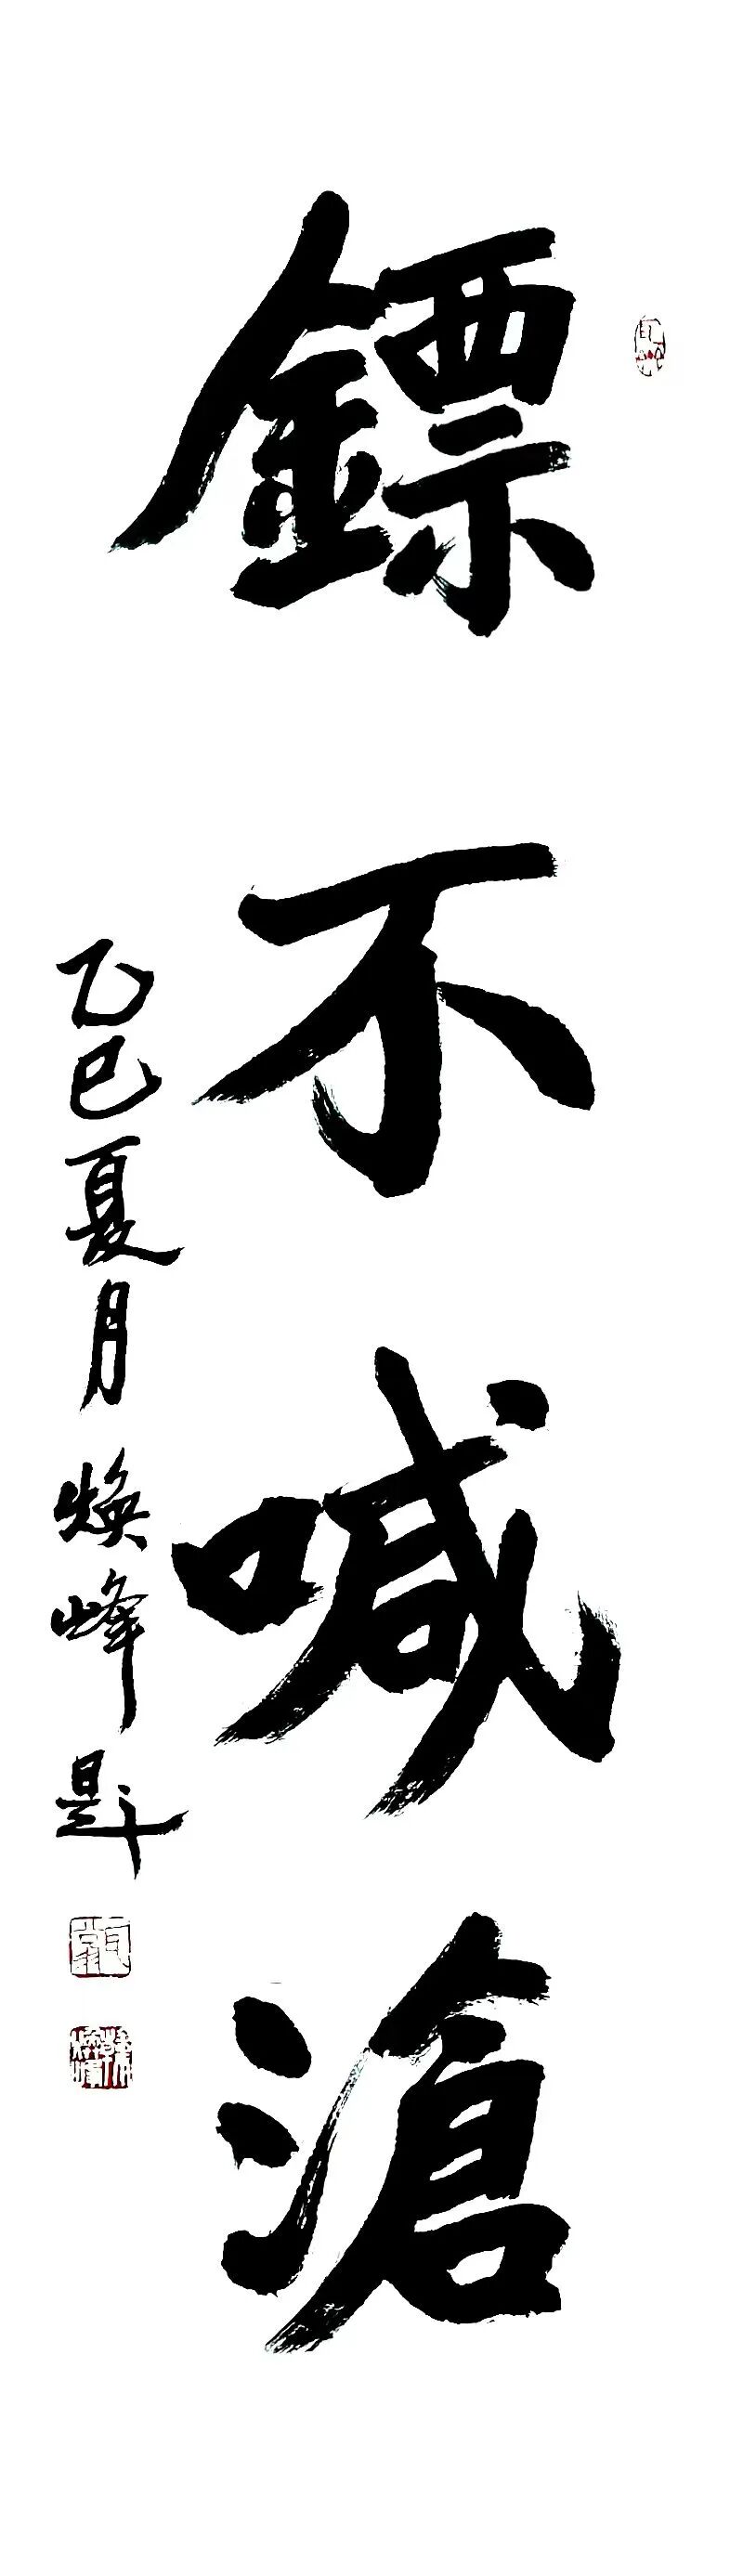 鏢不喊滄
乙巳夏月煥峰题